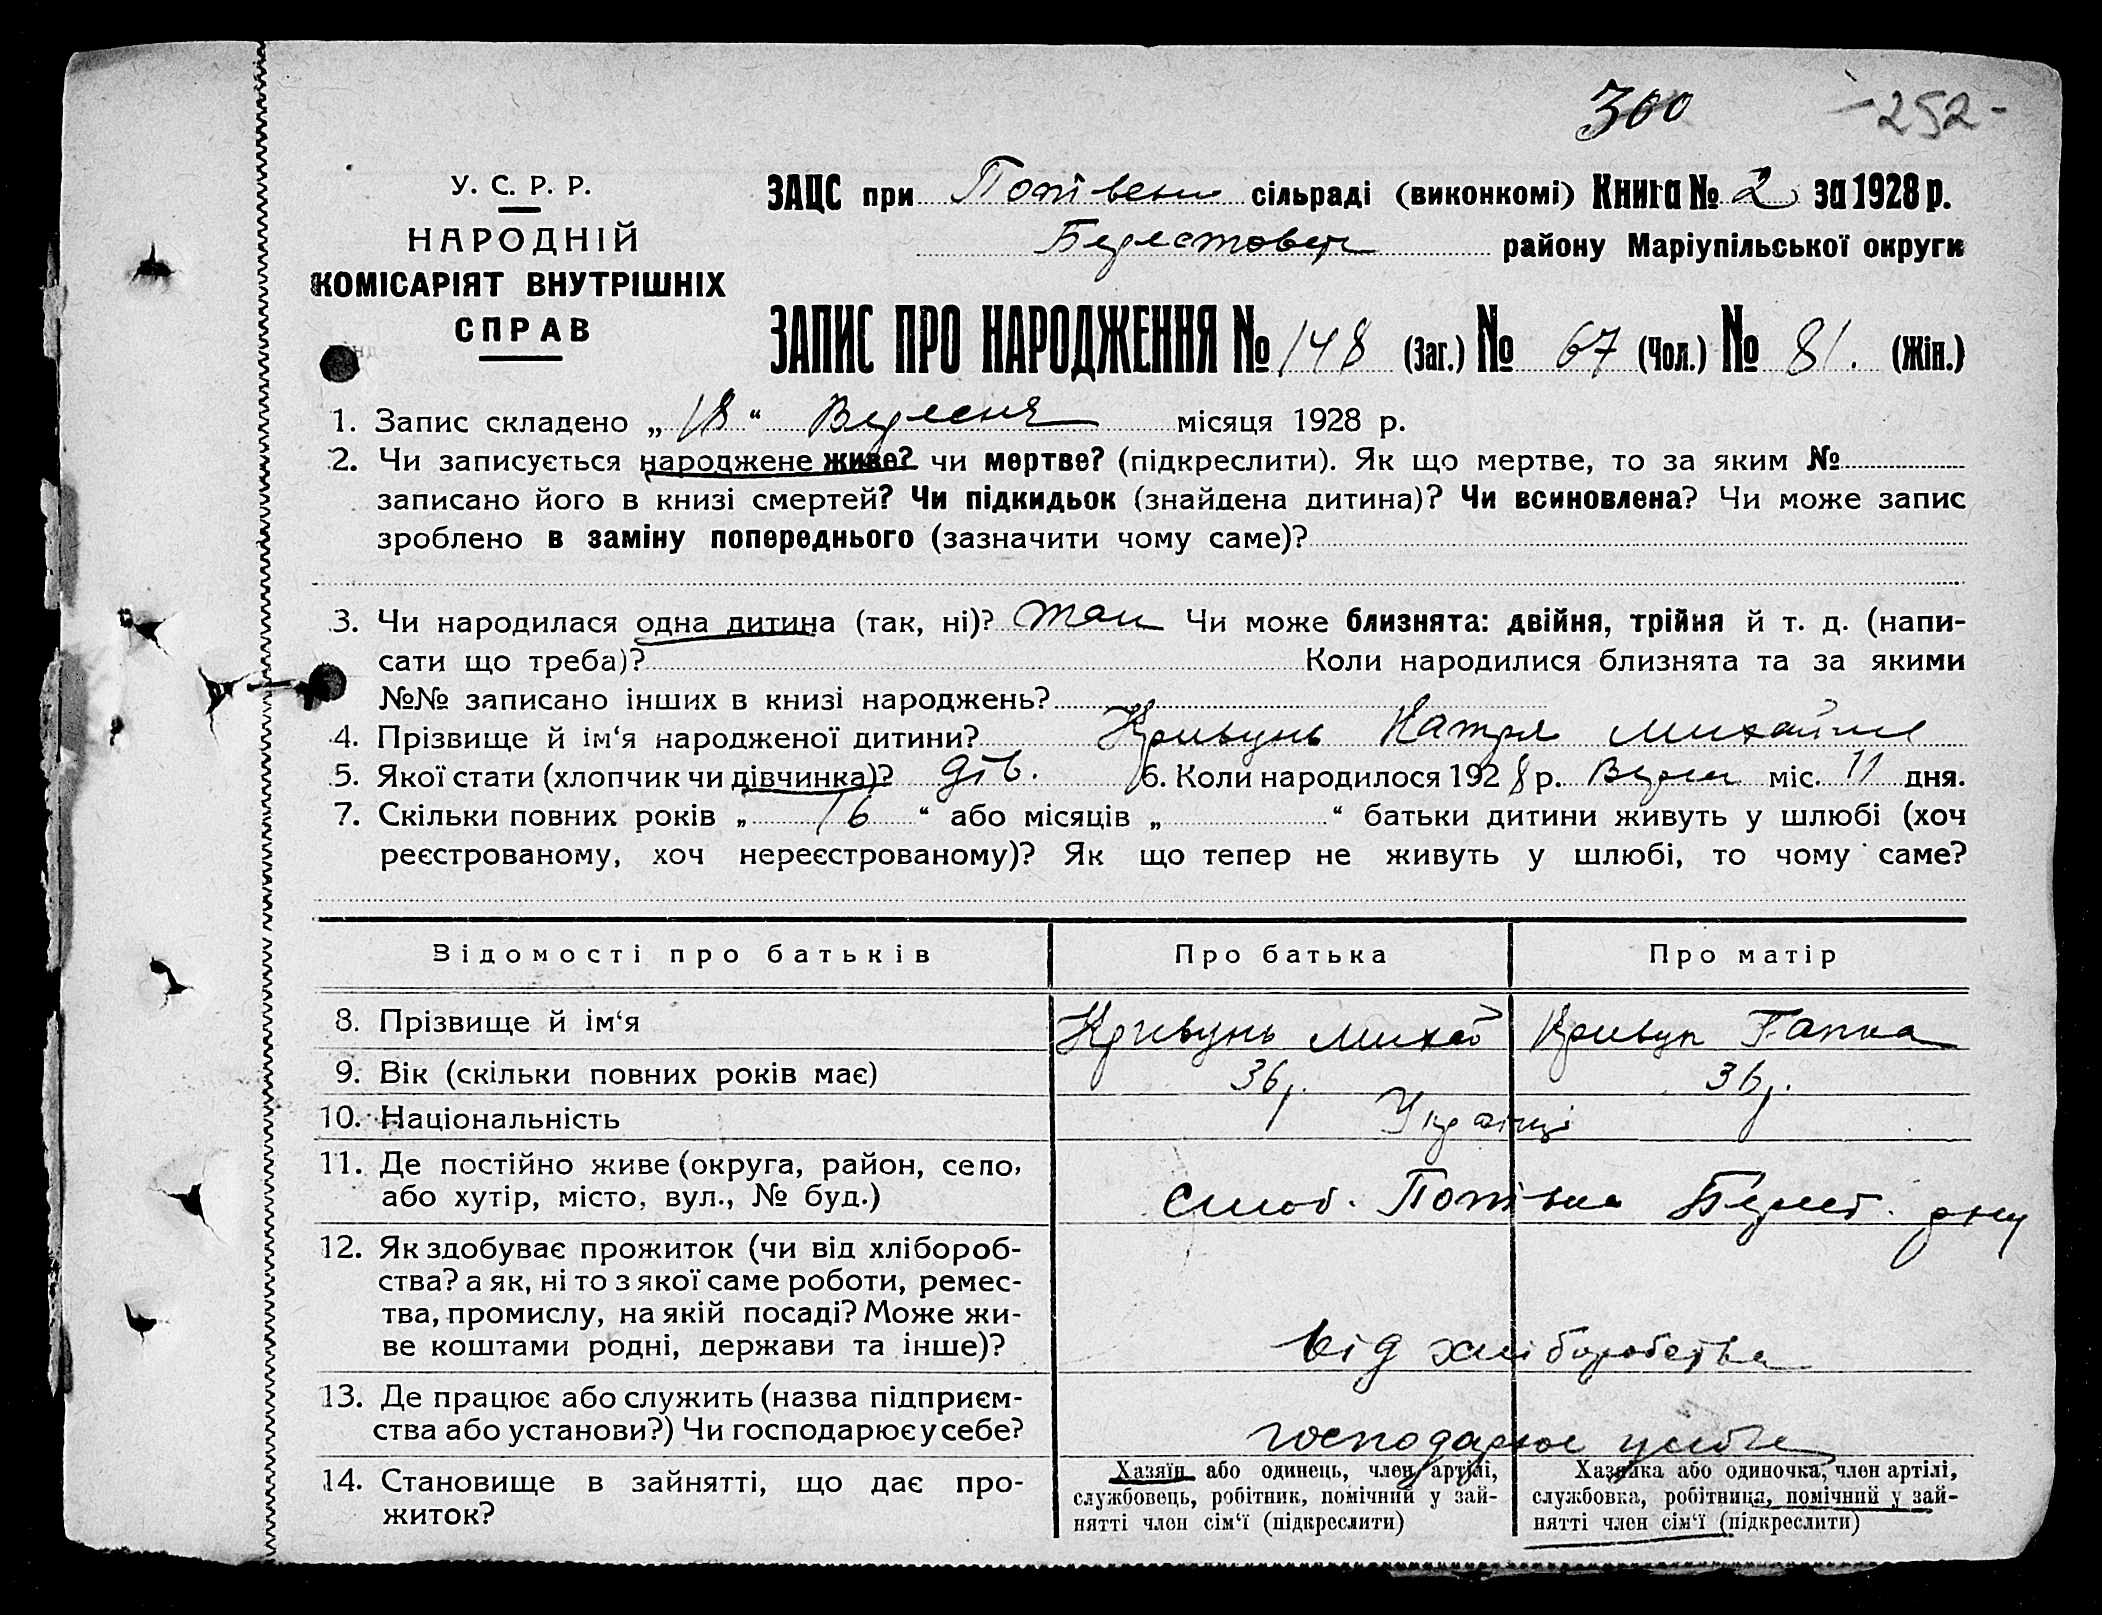 300 -252-
У. С. Р. Р.
НАРОДНІЙ
КОМІСАРІЯТ ВНУТРІШНІХ
СПРАВ
ЗАЦС при сільраді (виконкомі) Книга № 2 за 1928 р.
району Маріупільської округи
ЗАПИС ПРО НАРОДЖЕННЯ № 148 (Заг.) № 67 (Чол.) № 81. (Жін.)
1. Запис складено „ 18 “ Вересня місяця 1928 р.
2. Чи записується народжене живе? чи мертве? (підкреслити). Як що мертве, то за яким №
записано його в книзі смертей? Чи підкидьок (знайдена дитина)? Чи всиновлена? Чи може запис
зроблено в заміну попереднього (зазначити чому саме)?
3. Чи народилася одна дитина (так, ні)? Так Чи може близнята: двійня, трійня й т. д. (напи-
сати що треба)? Коли народилися близнята та за якими
№№ записано інших в книзі народжень?
4. Прізвище й ім‘я народженої дитини? Кривунь Катря
5. Якої стати (хлопчик чи дівчинка)? дів. 6. Коли народилося 1928 р. міс. 11 дня.
7. Скільки повних років „ 16 “ або місяців „ “ батьки дитини живуть у шлюбі (хоч
реєстрованому, хоч нереєстрованому)? Як що тепер не живуть у шлюбі, то чому саме?
Відомості про батьків Про батька Про матір
8. Прізвище й ім‘я Кривунь
9. Вік (скільки повних років має) 36 р. 36 р.
10. Національність Українці
11. Де постійно живе (округа, район, село,
або хутір, місто, вул., № буд.)
12. Як здобуває прожиток (чи від хлібороб-
ства? а як, ні то з якої саме роботи, ремес-
тва, промислу, на якій посаді? Може жи-
ве коштами родні, держави та інше)? від хліборобства
13. Де працює або служить (назва підприєм-
ства або установи?) Чи господарює у себе? господарює у себе
14. Становище в зайнятті, що дає про-
житок?
Хазяїн або одинець, член артілі,
службовець, робітник, помічний у зай-
нятті член сім‘ї (підкреслити)
Хазяйка або одиночка, член артілі,
службовка, робітниця, помічний у зай-
нятті член сім‘ї (підкреслити)